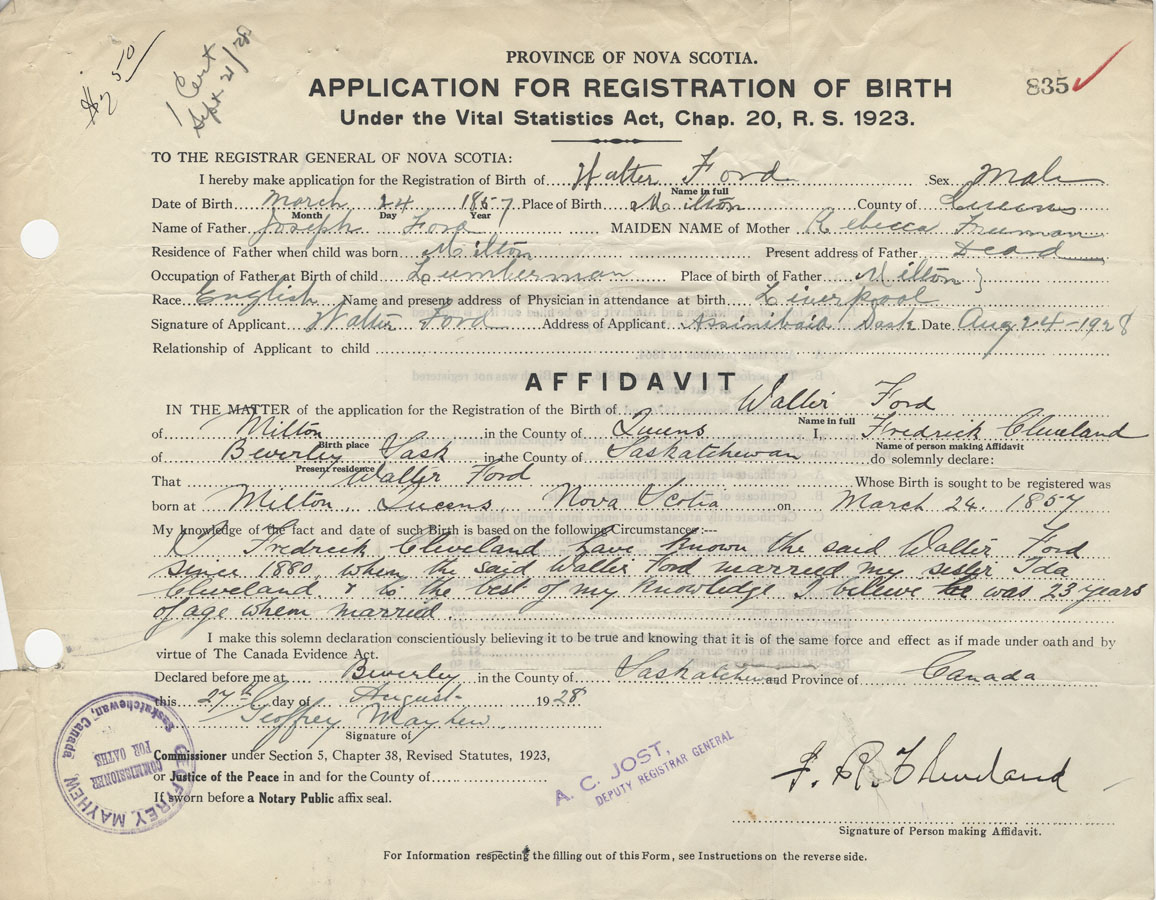 $ 50
1 Cert
Sept. 21/28
PROVINCE OF NOVA SCOTIA.
APPLICATION FOR REGISTRATION OF BIRTH
835
Under the Vital Statistics Act, Chap. 20, R. S. 1923.
TO THE REGISTRAR GENERAL OF NOVA SCOTIA:
I hereby make application for the Registration of Birth of Walter Ford Sex Male
Name in full
Date of Birth March 24 1857 Place of Birth Milton County of Queens
Month Day Year
Name of Father Joseph Ford MAIDEN NAME of Mother Rebecca Freeman
Residence of Father when child was born Milton Present address of Father Dead
Occupation of Father at Birth of child Lumberman Place of birth of Father Milton }
Race English Name and present address of Physician in attendance at birth Liverpool
Signature of Applicant Walter Ford Address of Applicant Assiniboia Sask Date Aug 24-1928
Relationship of Applicant to child
AFFIDAVIT
IN THE MATTER of the application for the Registration of the Birth of Walter Ford
Name in full
of Milton in the County of Queens I, Fredrick Cleveland
Birth place Name of person making Affidavit
of Beverley Sask in the County of Saskatchewan do solemnly declare:
Present residence
That Walter Ford Whose Birth is sought to be registered was
born at Milton Queens Nova Scotia on March 24. 1857
My knowledge of the fact and date of such Birth is based on the following Circumstances:--
I Fredrick Cleveland have known the said Walter Ford
since 1880 when the said Walter Ford married my sister Ida
Cleveland & to the best of my knowledge I believe he was 23 years
of age when married.
I make this solemn declaration conscientiously believing it to be true and knowing that it is of the same force and effect as if made under oath and by
virtue of The Canada Evidence Act.
Declared before me at Beverley in the County of Saskatchewan and Province of Canada
this 27th day of August 1928
Geoffrey Mayhew
Signature of
Commissioner under Section 5, Chapter 38, Revised Statutes, 1923,
or Justice of the Peace in and for the County of
If sworn before a Notary Public affix seal.
GEOFFREY MAYHEW
COMMISSIONER
FOR OATHS
Saskatchewan, Canada
A. C. JOST,
DEPUTY REGISTRAR GENERAL
F. R. Cleveland
Signature of Person making Affidavit.
For Information respecting the filling out of this Form, see Instructions on the reverse side.